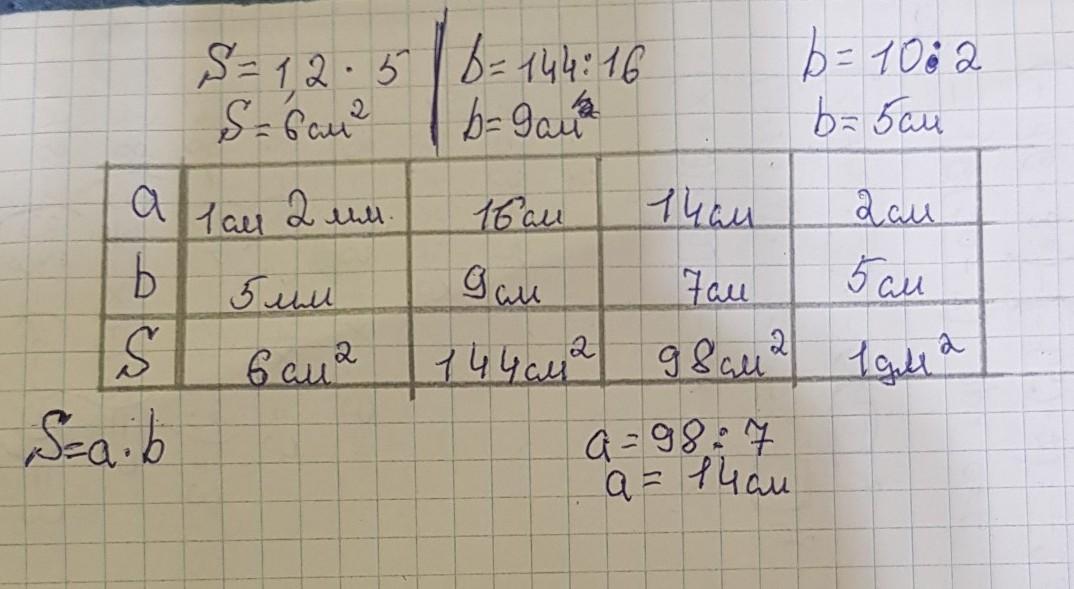 S = 1,2 · 5 | b = 144 : 16 b = 10 : 2
S = 6 см² | b = 9 см b = 5 см
a 1 см 2 мм. 16 см 14 см 2 см
b 5 мм 9 см 7 см 5 см
S 6 см² 144 см² 98 см² 1 дм²
S = a · b a = 98 : 7
a = 14 см